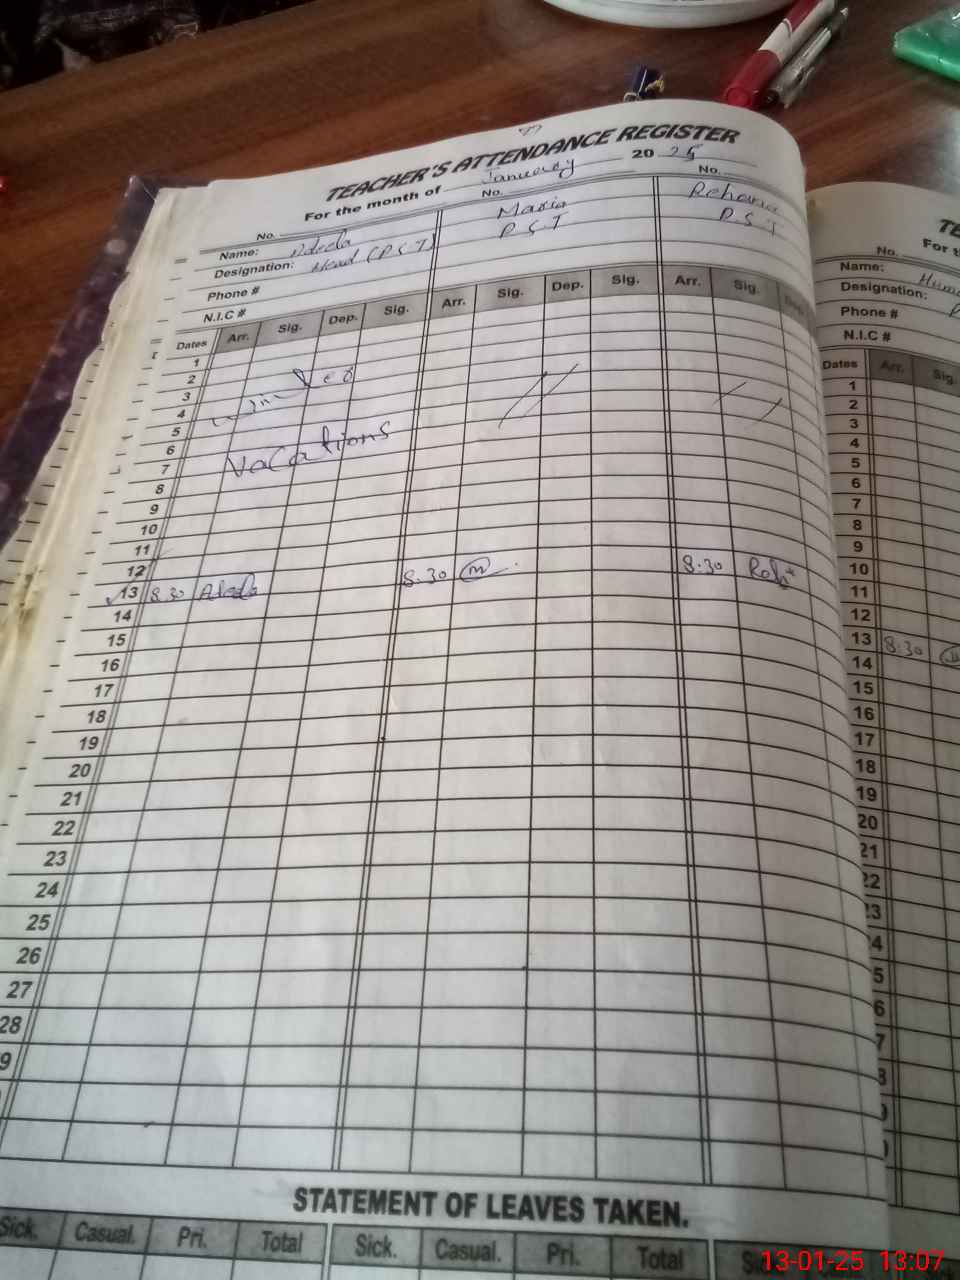 TEACHER'S ATTENDANCE REGISTER
For the month of January 20 25
No. No. No.
Name: Adeela Maria Rehana
Designation: Head (P.S.T) P.S.T P.S.T
Phone #
N.I.C #
Dates Arr. Sig. Dep. Sig. Arr. Sig. Dep. Sig. Arr. Sig.
1
2
3 Winter
4
5
6 Vacations
7
8
9
10
11
12
13 8.30 Adeela 8.30 m 8:30
14
15
16
17
18
19
20
21
22
23
24
25
26
27
28
9
STATEMENT OF LEAVES TAKEN.
Sick. Casual. Pri. Total Sick. Casual. Pri. Total
No.
Name:
Designation:
Phone #
N.I.C #
Dates Arr. Sig.
1
2
3
4
5
6
7
8
9
10
11
12
13 8:30
14
15
16
17
18
19
20
21
22
23
13-01-25 13:07